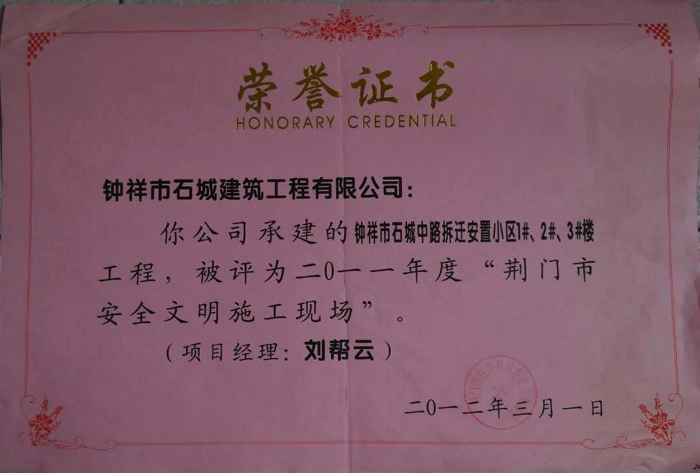 荣誉证书
HONORARY CREDENTIAL
钟祥市石城建筑工程有限公司：
你公司承建的钟祥市石城中路拆迁安置小区1#、2#、3#楼
工程，被评为二〇一一年度“荆门市
安全文明施工现场”。
（项目经理：刘帮云）
二〇一二年三月一日